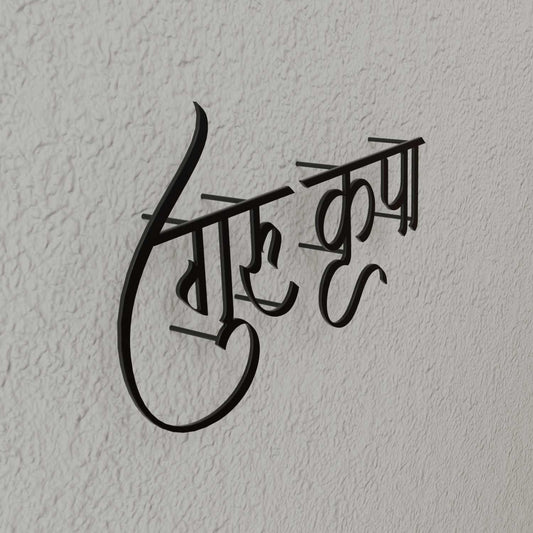 गुरु कृपा